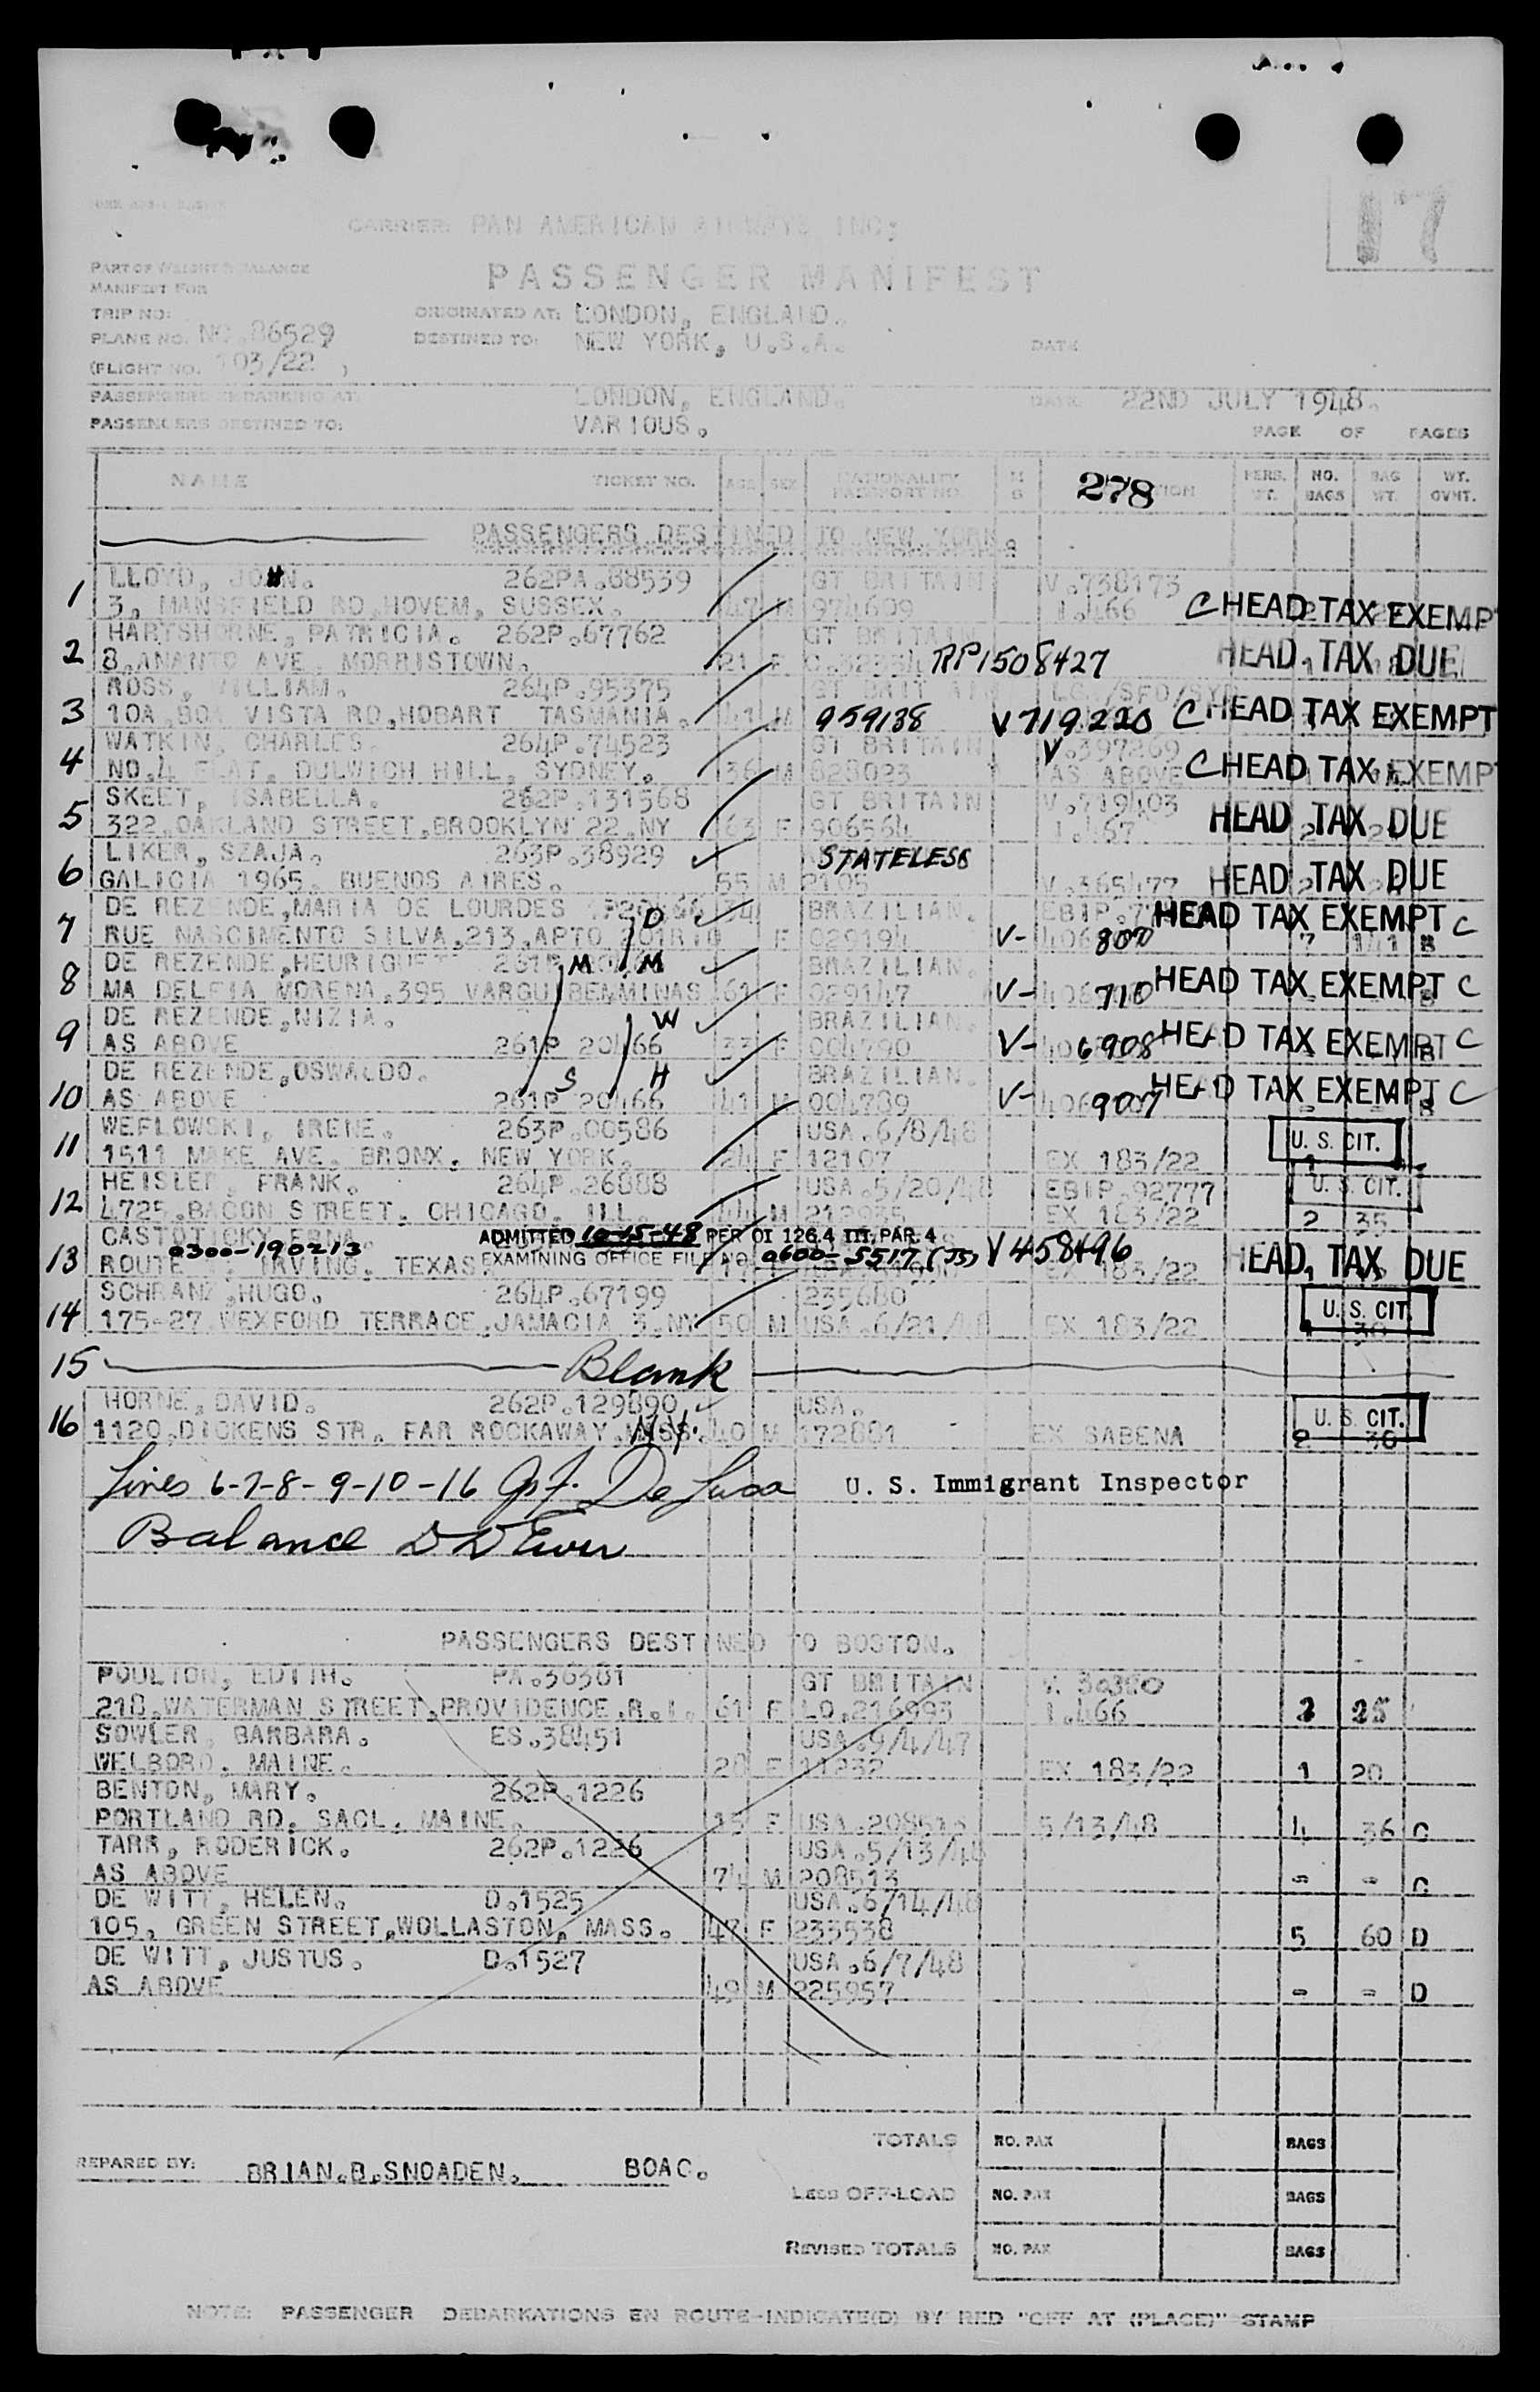 17
CARRIER: PAN AMERICAN AIRWAYS INC:
PART OF WEIGHT & BALANCE
MANIFEST FOR
PASSENGER MANIFEST
TRIP NO:
ORIGINATED AT: LONDON, ENGLAND.
PLANE NO. NC.86529
DESTINED TO: NEW YORK, U.S.A.
DATE
(FLIGHT NO. 103/22 )
PASSENGERS EMBARKING AT: LONDON, ENGLAND. DATE 22ND JULY 1948.
PASSENGERS DESTINED TO: VARIOUS.
PAGE OF PAGES
NAME TICKET NO. AGE SEX NATIONALITY PASSPORT NO. 278 PERS. WT. NO. BAGS BAG WT. WT. GVMT.
PASSENGERS DESTINED TO NEW YORK
LLOYD, JOHN. 262PA.88539 GT BRITAIN V.738173
1 3, MANSFIELD RD.HOVEM, SUSSEX. 47 M 974609 1.466 C HEAD TAX EXEMPT
HARTSHORNE, PATRICIA. 262P.67762 GT BRITAIN
2 8,ANANTO AVE. MORRISTOWN. 21 F RP1508427 HEAD TAX DUE
ROSS, WILLIAM. 264P.95375 GT BRITAIN
3 10A, VISTA RD,HOBART TASMANIA. 41 M 959138 V719220 C HEAD TAX EXEMPT
WATKIN, CHARLES. 264P.74523 GT BRITAIN V.397269
4 NO.4 FLAT. DULWICH HILL, SYDNEY. 36 M 828023 AS ABOVE C HEAD TAX EXEMPT
SKEET, ISABELLA. 262P.131568 GT BRITAIN V.719403
5 322,OAKLAND STREET,BROOKLYN 22.NY 63 F 906564 1.467 HEAD TAX DUE
LIKER, SZAJA. 263P.38929 STATELESS
6 GALICIA 1965. BUENOS AIRES. 55 M 2105 V.365477 HEAD TAX DUE
DE REZENDE,MARIA DE LOURDES 34 BRAZILIAN. HEAD TAX EXEMPT C
7 RUE NASCIMENTO SILVA,213,APTO 201RIO D F 029194 V-406800
DE REZENDE,HEURIQUET M M BRAZILIAN.
8 MA DELFIA MORENA.395 VARGU BEMMINAS 61 F 029147 V-406710 HEAD TAX EXEMPT C
DE REZENDE,NIZIA. W BRAZILIAN.
9 AS ABOVE 261P 20466 33 F 004790 V-406908 HEAD TAX EXEMPT C
DE REZENDE,OSWALDO. S H BRAZILIAN.
10 AS ABOVE 261P 20466 41 M 004789 V-406907 HEAD TAX EXEMPT C
WEFLOWSKI, IRENE. 263P.00586 USA.6/8/48
11 1511 MAKE AVE. BRONX. NEW YORK. 24 F 12107 EX 183/22 U. S. CIT. 1
HEISLER, FRANK. 264P.26888 USA.5/20/48 EBIP.92777 U. S. CIT.
12 4725,BACON STREET. CHICAGO. ILL. 44 M 212935 EX 183/22 2 35
ADMITTED 10-15-48 PER OI 126.4 III, PAR. 4
0300-190213
13 ROUTE IRVING. TEXAS. EXAMINING OFFICE FILE NO. 0600-5517 (JS) V458496 EX 183/22 HEAD TAX DUE
SCHRANZ,HUGO. 264P.67199 235680
14 175-27 WEXFORD TERRACE,JAMACIA 3.NY 50 M USA.6/21/48 EX 183/22 U. S. CIT. 1 30
15 Blank
HORNE, DAVID. 262P.129890 USA.
16 1120,DICKENS STR. FAR ROCKAWAY. N.Y. 40 M 172881 EX SABENA U. S. CIT. 2 38
Lines 6-7-8-9-10-16 De Luca U. S. Immigrant Inspector
Balance
PASSENGERS DESTINED TO BOSTON.
POULTON, EDITH. PA.36361 GT BRITAIN
218,WATERMAN STREET,PROVIDENCE.R.I. 61 F LO.216993 1.466 2 25
SOWLER, BARBARA. ES.38451 USA.9/4/47
WELBORO. MAINE. 28 F 11232 EX 183/22 1 20
BENTON, MARY. 262P.1226
PORTLAND RD. SACL. MAINE. 15 F USA.208515 5/13/48 4 36 C
TARR, RODERICK. 262P.1226 USA.5/13/48
AS ABOVE 74 M 208513 - - C
DE WITT, HELEN. D.1525 USA.6/14/48
105, GREEN STREET,WOLLASTON, MASS. 47 F 233538 5 60 D
DE WITT, JUSTUS. D.1527 USA.6/7/48
AS ABOVE 49 M 225957 - - D
TOTALS NO. PAX BAGS
REPARED BY: BRIAN.B.SNOADEN. BOAC.
LESS OFF-LOAD NO. PAX BAGS
REVISED TOTALS NO. PAX BAGS
NOTE: PASSENGER DEBARKATIONS EN ROUTE-INDICATE(D) BY RED "OFF AT (PLACE)" STAMP